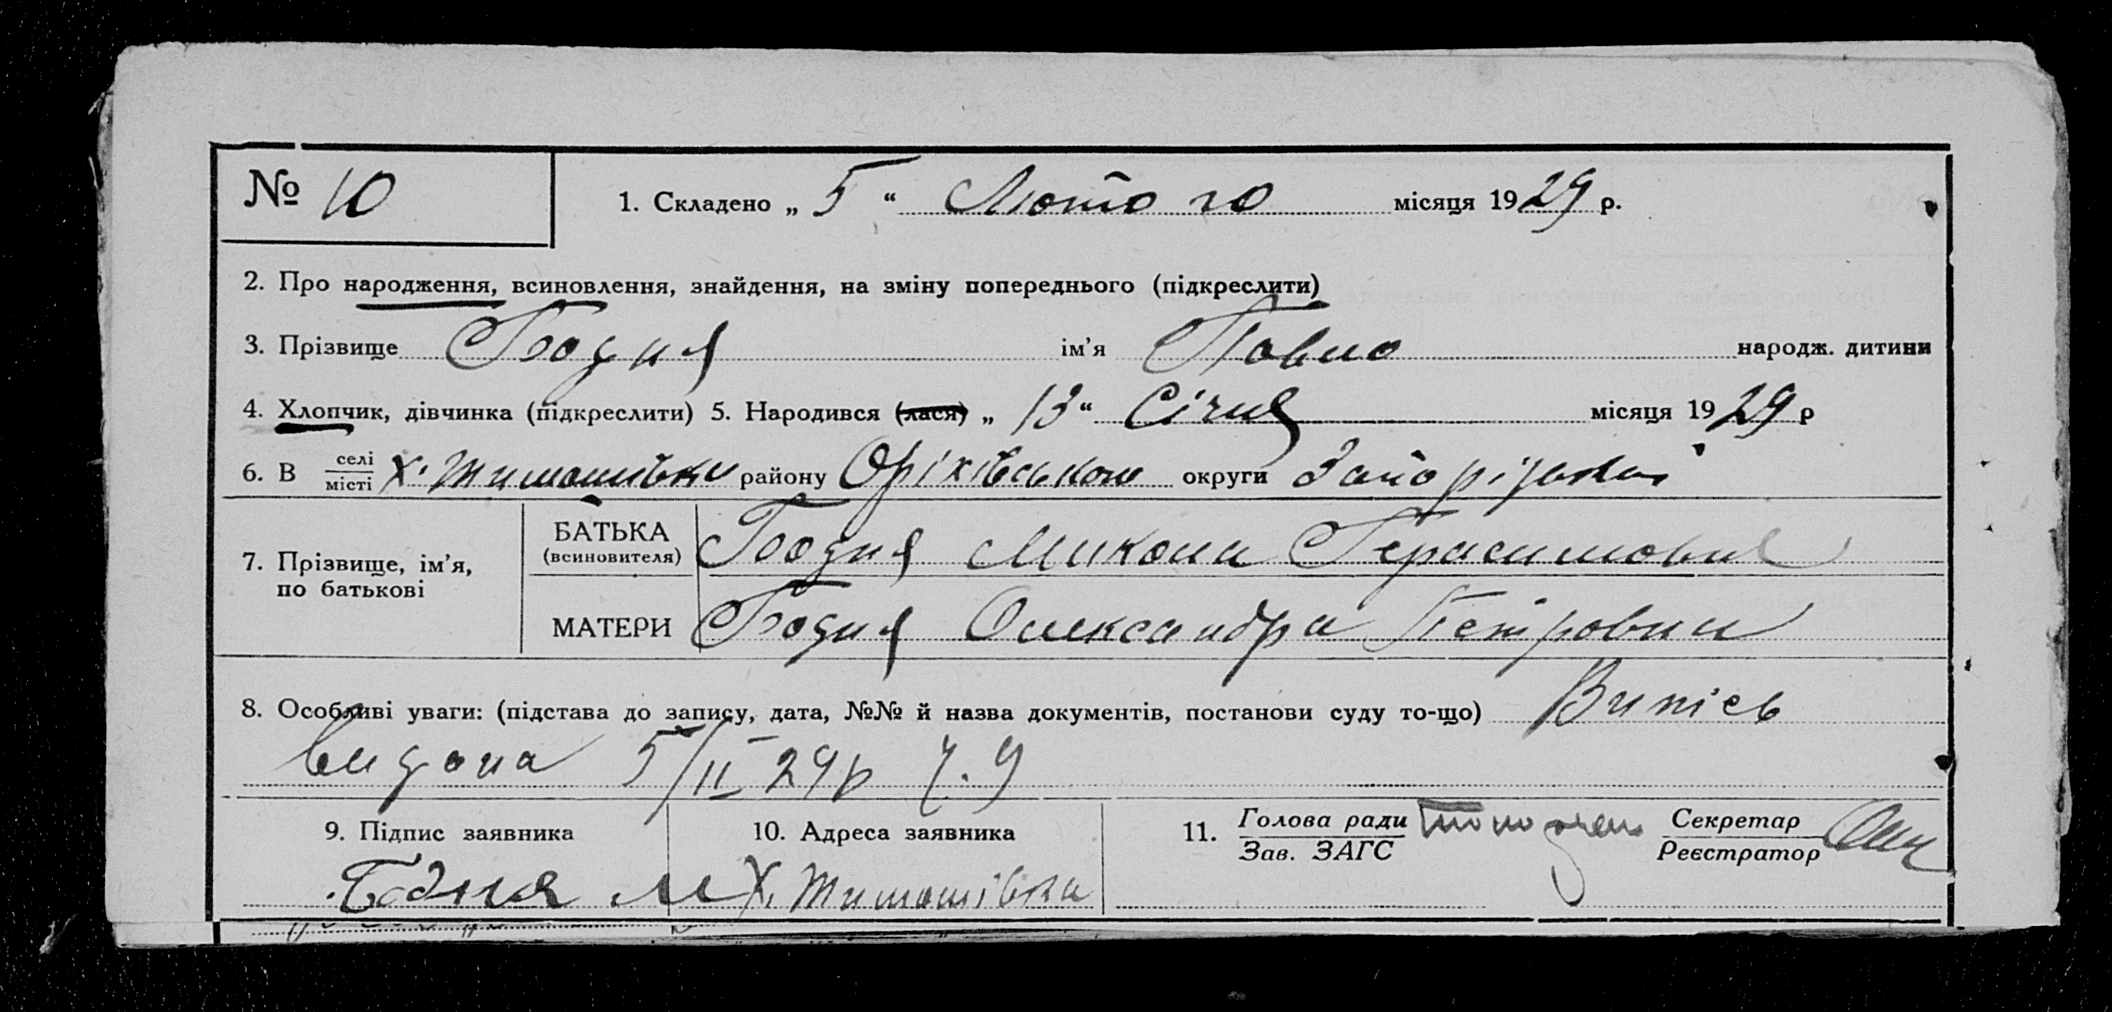 № 10
1. Складено „ 5 “ Лютого місяця 1929 р.
2. Про народження, всиновлення, знайдення, на зміну попереднього (підкреслити)
3. Прізвище Бодня ім’я Павло народж. дитини
4. Хлопчик, дівчинка (підкреслити) 5. Народився (лася) „ 13 “ Січня місяця 1929 р
6. В селі місті х. Тимошівки району Оріхівського округи Запорізької
7. Прізвище, ім’я, по батькові
БАТЬКА (всиновителя) Бодня Микола Герасимович
МАТЕРИ Бодня Олександра Петровна
8. Особливі уваги: (підстава до запису, дата, №№ й назва документів, постанови суду то-що) Випісь
видана 5/II 29р Ч. 9
9. Підпис заявника 10. Адреса заявника 11. Голова ради Зав. ЗАГС Секретар Реєстратор
Бодня М Х. Тимошівка